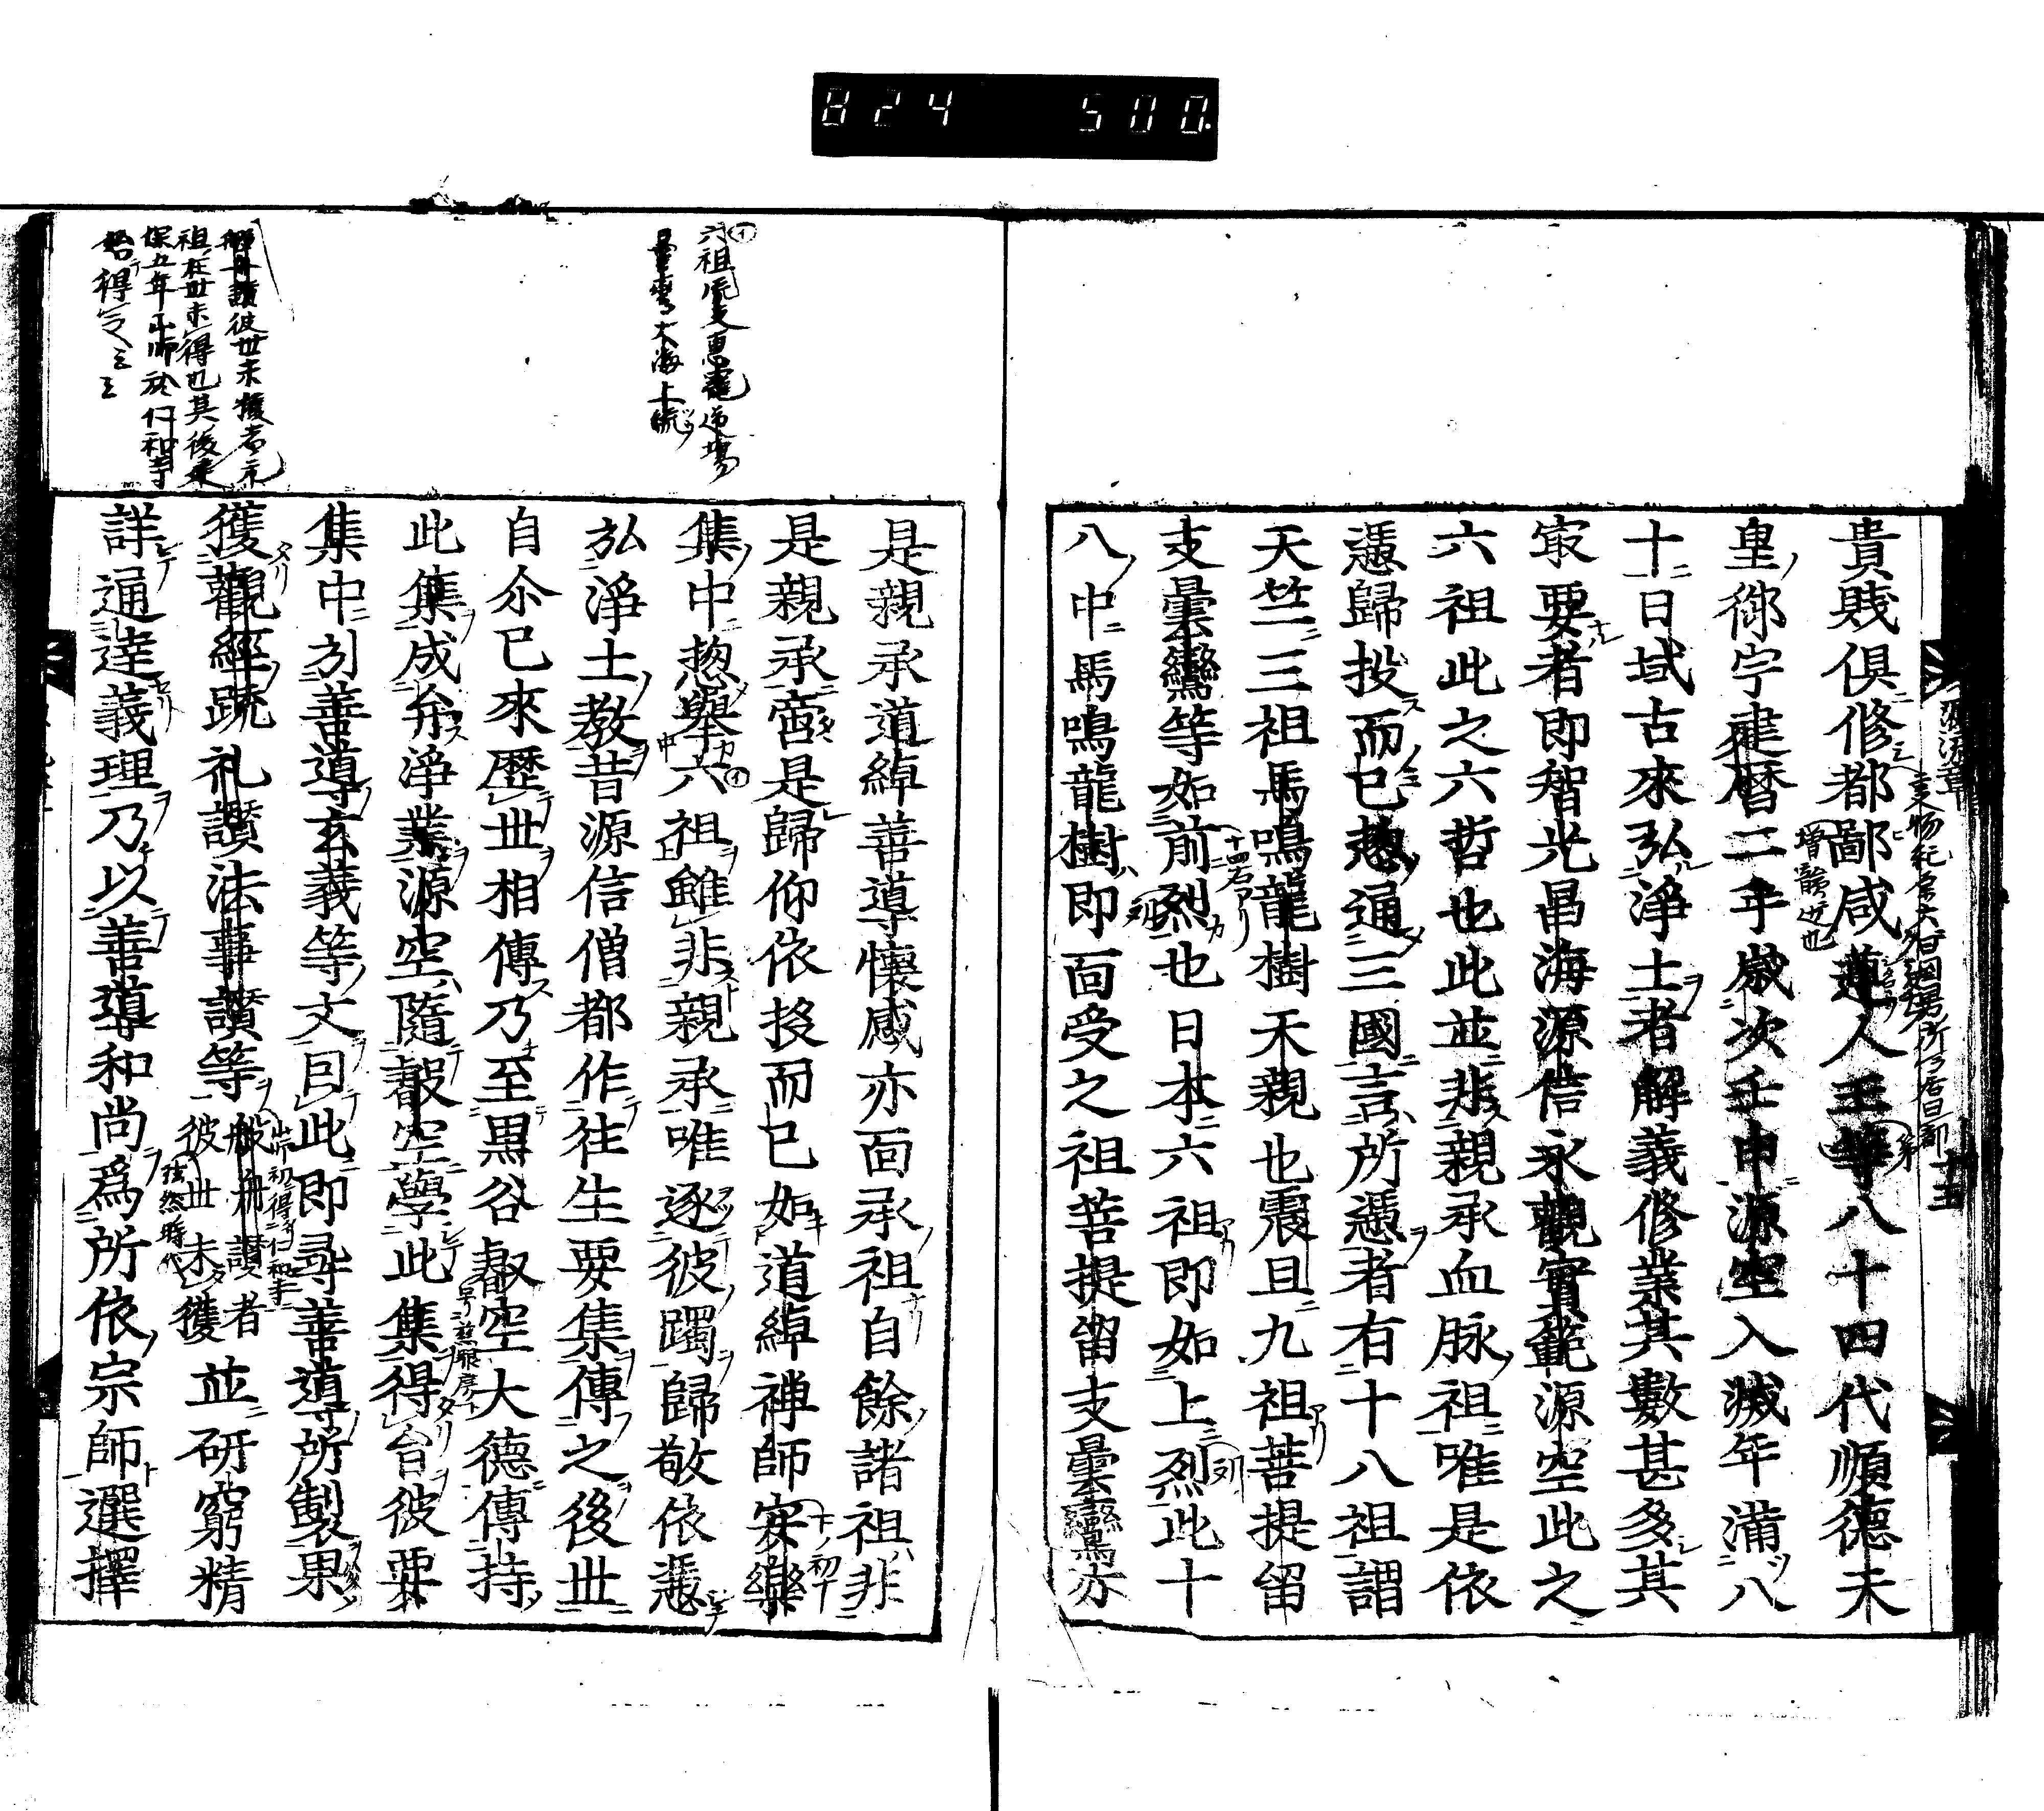 824 500.
貴賎俱修都鄙咸遵人王第八十四代順德天
皇御宇建曆二年歲次壬申源空入滅年滿八
十日域古來弘淨土者解義修業其數甚多其
㝡要者即智光昌海源信永觀實範源空此之
六祖此之六哲也此並非親承血脉祖唯是依
憑歸投而已惣通三國言所憑者有十八祖謂
天竺三祖馬鳴龍樹天親也震旦九祖菩提留
支曇鸞等如前烈也日本六祖即如上烈此十
八中馬鳴龍樹即面受之祖菩提留支曇鸞亦
是親承道綽善導懷感亦面承祖自餘諸祖非
是親承啻是歸仰依投而已如道綽禅師安樂
集中惣舉六祖雖非親承唯逐彼躅歸敬依憑
弘淨土教昔源信僧都作往生要集傳之後世
自尒已來歷世相傳乃至黒谷叡空大德傳持
此集成弁淨業源空隨叡空學此集得旨彼要
集中引善導玄義等文因此即尋善導所製果
獲觀經䟽礼讃法事讃等般舟讃者彼世未獲並研窮精
詳通達義理乃以善導和尚爲所依宗師選擇
六祖
大海上流
彼世未獲者
祖在世未得也其後建
保五年
始得